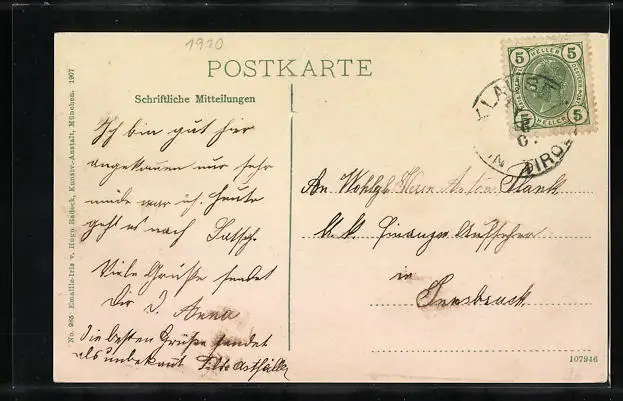 1910
POSTKARTE
Schriftliche Mitteilungen
Ich bin gut hier
angekommen nur sehr
müde war ich. Heute
geht es nach Latsch.
Viele Grüße sendet
Dir D. Anna
Die besten Grüße sendet
als unbekannt
An Wohlgb Herrn Anton Plank
k. k. Finanz Aufseher
in
Innsbruck
5 HELLER 5
5 HELLER 5
IN TIROL
No. 285 Emaille-Iris v. Hugo Radock, Kunstv.-Anstalt, München. 1907
107946